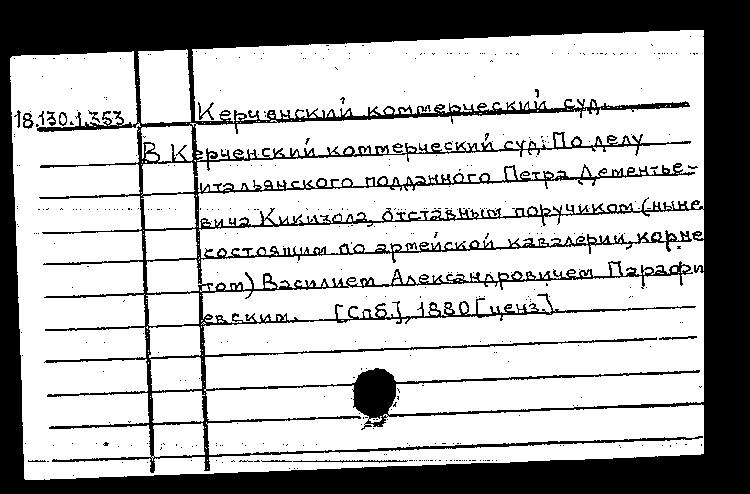 18.130.1.353. Керченский коммерческий суд.
В Керченский коммерческий суд. По делу
итальянского подданного Петра Дементье-
вича с отставным поручиком (ныне
состоящим по армейской кавалерии, корне
том) Василием Александровичем Парафи
евским. [Спб.], 1880 [ценз.].